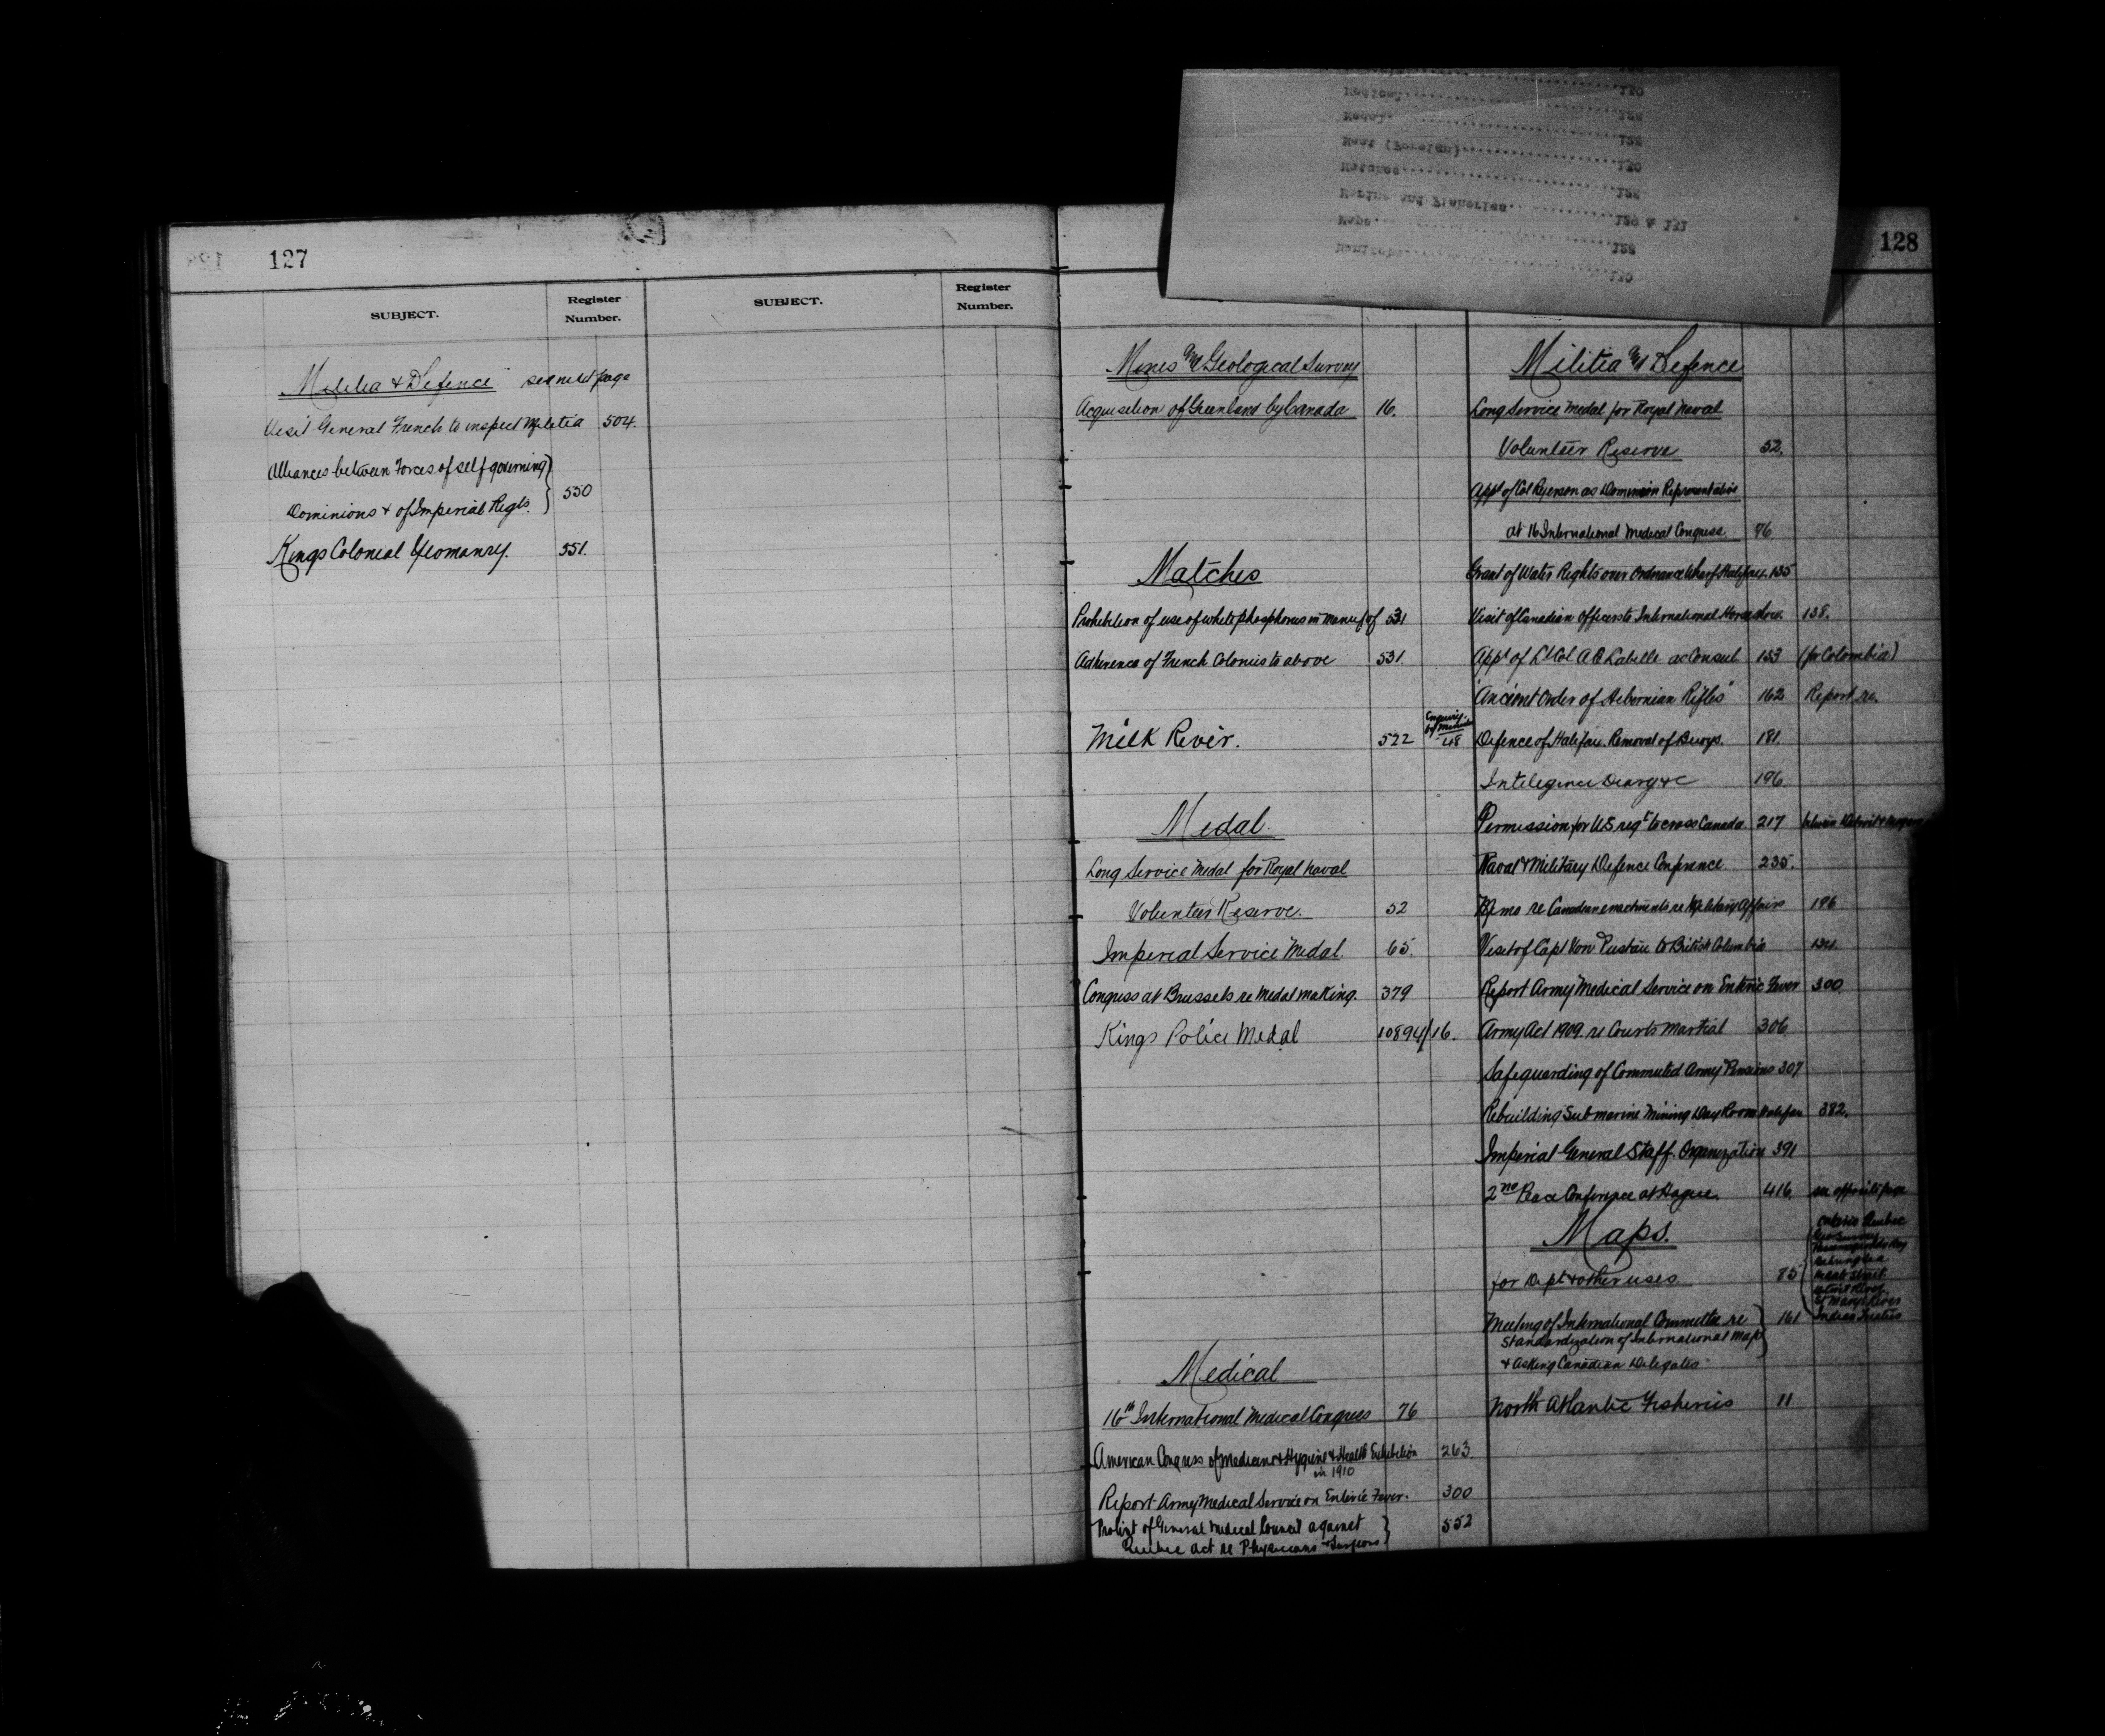 127
SUBJECT.
Register Number.
SUBJECT.
Register Number.
Militia & Defence see next page
Visit General French to inspect Militia 504.
Alliances between Forces of self governing
Dominions & of Imperial Regts. 550
Kings Colonial Yeomanry. 551.
128
Manitoba 130
Maps 128
Marine and Fisheries 129 & 131
Matches 128
Meat (Foreign) 130
Medal 128
Medical 128
Mines Geological Survey
Acquisition of Greenland by Canada 16.
Matches
Prohibition of use of white phosphorus in Manuf of 531
Adherence of French Colonies to above 531.
Milk River. 522 Enquiry by 48
Medal
Long Service Medal for Royal Naval
Volunteer Reserve. 52
Imperial Service Medal. 65.
Congress at Brussels re Medal making. 379
Kings Police Medal 10894/16.
Medical
16th International Medical Congress 76
American Congress of Medicine & Hygiene & Health Exhibition 263.
in 1910
Report Army Medical Service on Enteric Fever. 300
Protest of General Medical Council against 552
Quebec Act re Physicians & Surgeons
Militia & Defence
Long Service Medal for Royal Naval
Volunteer Reserve 52.
Appt of Col Ryerson as Dominion Representative
at 16 International Medical Congress. 76
Grant of Water Rights over Ordnance Wharf Halifax. 135
Visit of Canadian Officers to International Horse show. 138.
Appt of Lt Col A E Labelle as Consul 153 (for Colombia)
"Ancient Order of Hibernian Rifles" 162 Report re.
Defence of Halifax. Removal of Buoys. 181.
Intelegence Diary &c 196.
Permission for U.S. regt to cross Canada. 217 between Detroit &
Naval & Military Defence Conference. 235.
Memo re Canadian enactments re Military Affairs 196
Visit of Capt Von to British Columbia
Report Army Medical Service on Enteric Fever 300.
Army Act 1909. re Courts Martial 306
Safeguarding of Commuted Army Pensions 307
Rebuilding Submarine Mining Day Room Halifax 382.
Imperial General Staff. Organization 391
2nd Peace Conference at Hague. 416. see opposite page
Maps.
for Dept & other uses 75
Ontario Quebec
Behring Sea
St Marys River
Indian Treaties
Meeting of International Committee re 161
Standardization of International Map
& asking Canadian Delegates
North Atlantic Fisheries 11